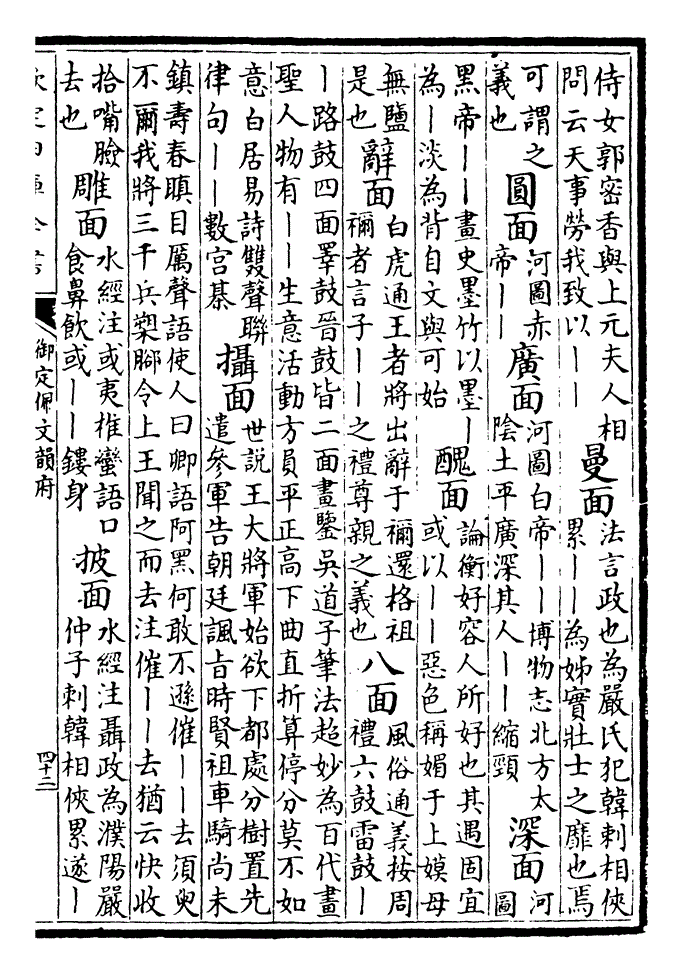 侍女郭密香與上元夫人相
問云天事勞我致以丨丨
曼面
法言政也為嚴氏犯韓刺相俠
累丨丨為姊實壯士之靡也焉
可謂之
義也
圓面
河圖赤
帝丨丨
廣面
河圖白帝丨丨博物志北方太
陰土平廣深其人丨丨縮頸
深面
河
圖
黑帝丨丨畫史墨竹以墨丨
為丨淡為背自文與可始
醜面
論衡好容人所好也其遇固宜
或以丨丨惡色稱媚于上嫫母
無鹽
是也
辭面
白虎通王者將出辭于禰還格祖
禰者言子丨丨之禮尊親之義也
八面
風俗通義按周
禮六鼓雷鼓丨
丨路鼓四面睪鼓晉鼓皆二面畫鑒吳道子筆法超妙為百代畫
聖人物有丨丨生意活動方員平正高下曲直折算停分莫不如
意白居易詩雙聲聯
律句丨丨數宫棊
攝面
世説王大將軍始欲下都處分樹置先
遣參軍告朝廷諷旨時賢祖車騎尚未
鎮壽春瞋目厲聲語使人曰卿語阿黑何敢不遜催丨丨去須臾
不爾我將三千兵槊腳令上王聞之而去注催丨丨去猶云快收
拾嘴臉
去也
雕面
水經注或夷椎蠻語口
食鼻飲或丨丨鏤身
披面
水經注聶政為濮陽嚴
仲子刺韓相俠累遂丨
欽定四庫全書
御定佩文韻府
四十三